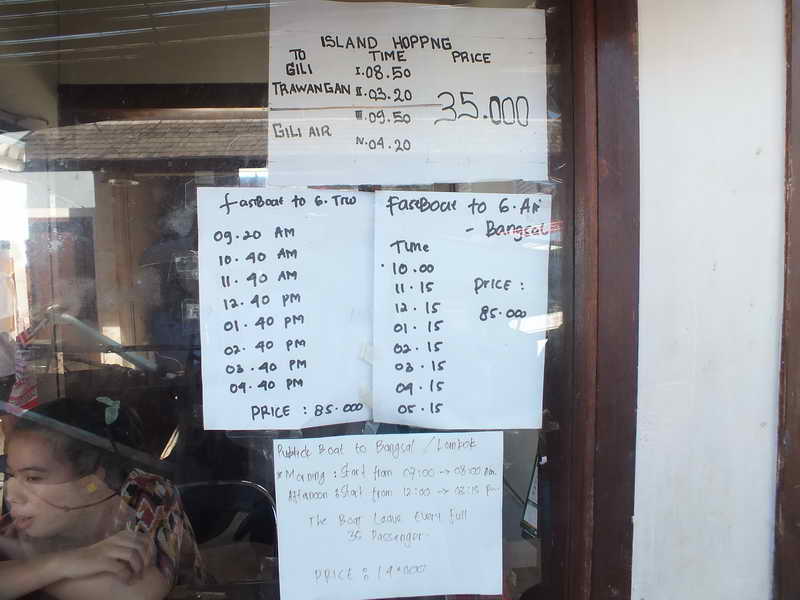 ISLAND HOPPNG
TO TIME PRICE
GILI I.08.50
TRAWANGAN II.03.20
35.000
III.09.50
GILI AIR
IV.04.20
fastBoat to G.Trw
09.20 AM
10.40 AM
11.40 AM
12.40 PM
01.40 PM
02.40 PM
03.40 PM
04.40 PM
PRICE : 85.000
fastBoat to G.Air
- Bangsal
Time
10.00
11.15
12.15
01.15
02.15
03.15
04.15
05.15
PRICE :
85.000
Publick Boat to Bangsal / Lombok
* Morning : Start from 07:00 -> 08:00 Am
Afternoon : Start from 12:00 -> 
The Boat Leave Every full
35 Passenger
PRICE :